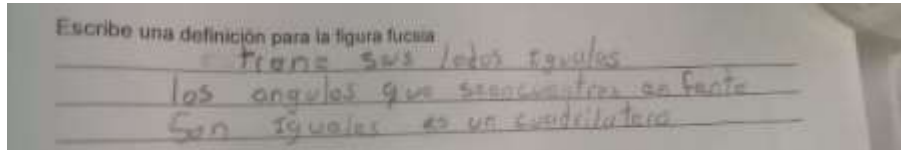 Escribe una definición para la figura fucsia
tiene sus lados iguales
los angulos que seencuentran en fente
Son iguales es un cuadrilatero